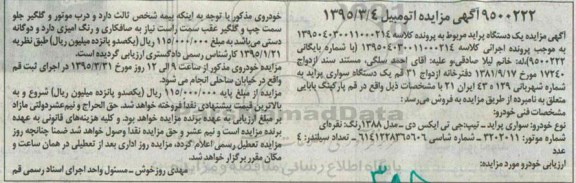 ۹۵۰۰۲۲۲ آگهی مزایده اتومبیل ۱۳۹۵/۳/۴
آگهی مزایده یک دستگاه پراید مربوط به پرونده کلاسه
به موجب پرونده اجرائی کلاسه (با شماره بایگانی
۹۵۰۰۲۲۲) له: خانم لیلا صادقی و علیه: آقای احمد سلگی، مستند سند ازدواج
۱۷۲۴۰ مورخ ۱۳۸۱/۹/۱۷ دفترخانه ازدواج ۳۱ قم یک دستگاه سواری پراید به
شماره شهربانی ۱۲۹ ی ۴۳ ایران ۳۱ با مشخصات ذیل واقع در قم پارکینگ بابایی
متعلق به نامبرده از طریق مزایده به فروش می‌رسد:
مشخصات فنی خودرو:
نوع خودرو: سواری پراید - تیپ: جی تی ایکس دی - مدل ۱۳۸۸ رنگ: نقره‌ای
شماره موتور: ۳۲۰۲۰۱۱ - شماره شاسی - تعداد سیلندر: ۴
عدد
ارزیابی خودرو مورد مزایده:
خودروی مذکور با توجه به اینکه بیمه شخص ثالث دارد و درب موتور و گلگیر جلو
سمت چپ و گلگیر عقب سمت راست نیاز به صافکاری و رنگ آمیزی دارد و دوگانه
دستی می‌باشد به مبلغ ۱۱۵/۰۰۰/۰۰۰ ریال (یکصدو پانزده میلیون ریال) طبق نظریه
۱۳۹۵/۱/۲۱ کارشناس رسمی دادگستری ارزیابی گردیده است.
مزایده خودروی مذکور از ساعت ۹ الی ۱۲ روز مورخ ۱۳۹۵/۳/۳۱ در اجرای ثبت قم
واقع در خیابان ساحلی انجام می شود.
مزایده از مبلغ پایه ۱۱۵/۰۰۰/۰۰۰ ریال (یکصدو پانزده میلیون ریال) شروع و به
بالاترین قیمت پیشنهادی نقدا فروخته خواهد شد. حق الحراج و نیم‌عشر دولتی مازاد
بر مبلغ ارزیابی به عهده برنده مزایده خواهد بود و کلیه هزینه‌های قانونی به عهده
برنده مزایده است و نیم عشر و حق مزایده نقدا وصول خواهد شد ضمنا چنانچه روز
مزایده تعطیل رسمی اعلام گردد، مزایده روز اداری بعد از تعطیلی در همان ساعت و
مکان مقرر برگزار خواهد شد.
مهدی روزخوش - مسئول واحد اجرای اسناد رسمی قم